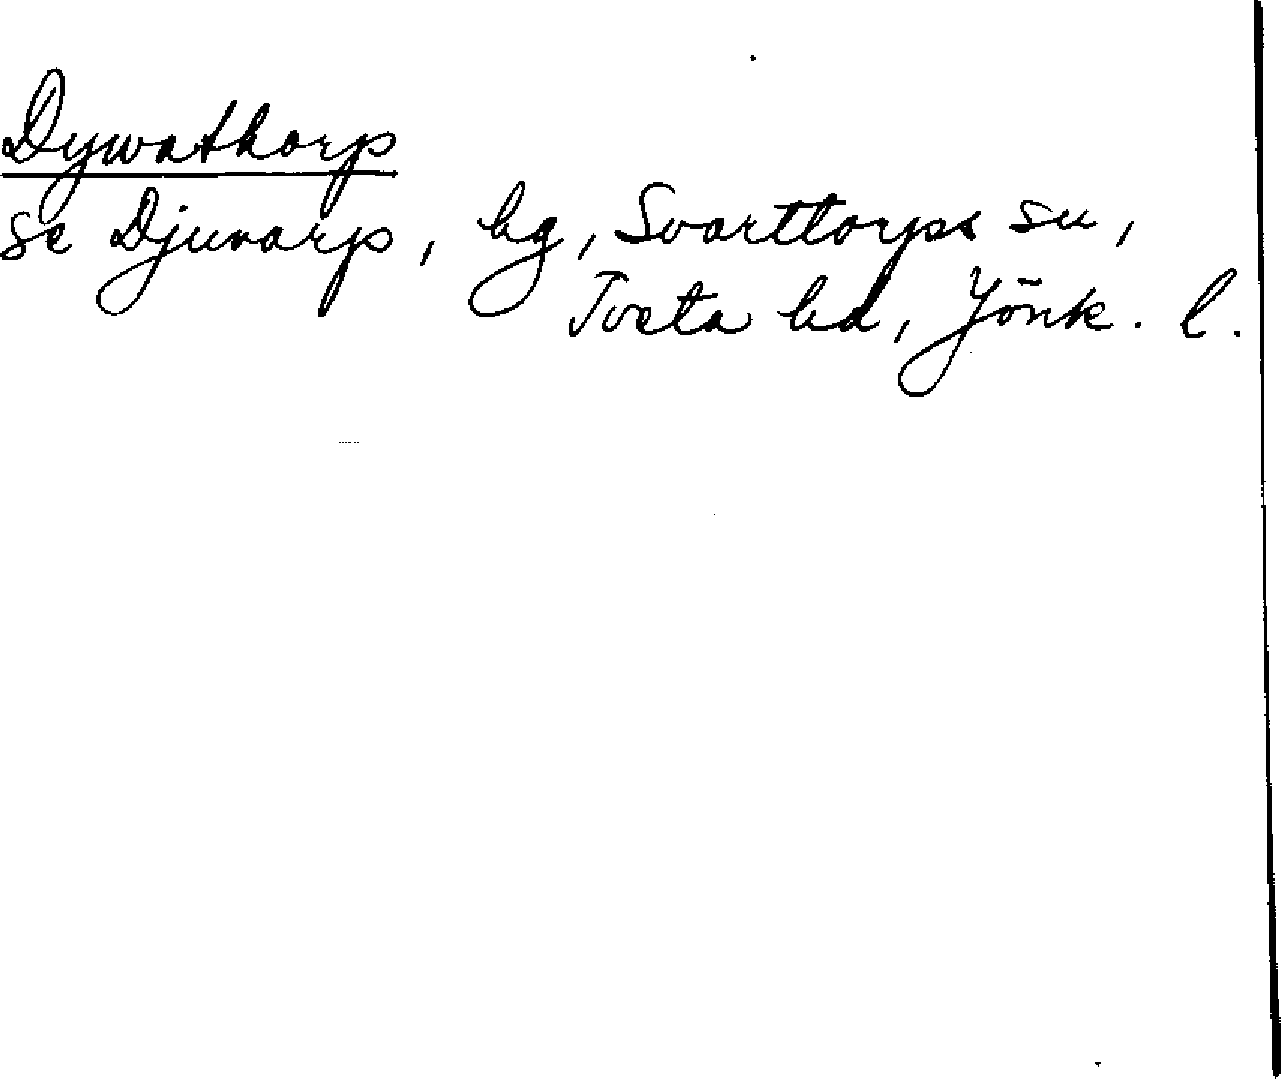 Dywathorp
se Djuvarp, hg, Svarttorps sn,
Tveta hd, Jönk. l.